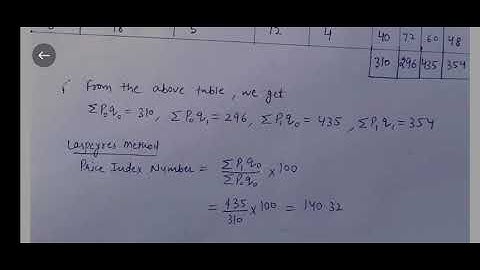 16 5 12 4 40 72 60 48
310 296 435 354
From the above table, we get
ΣP₀q₀ = 310, ΣP₀q₁ = 296, ΣP₁q₀ = 435, ΣP₁q₁ = 354
Laspeyres Method
Price Index Number = ΣP₁q₀/ΣP₀q₀ × 100
= 435/310 × 100 = 140.32